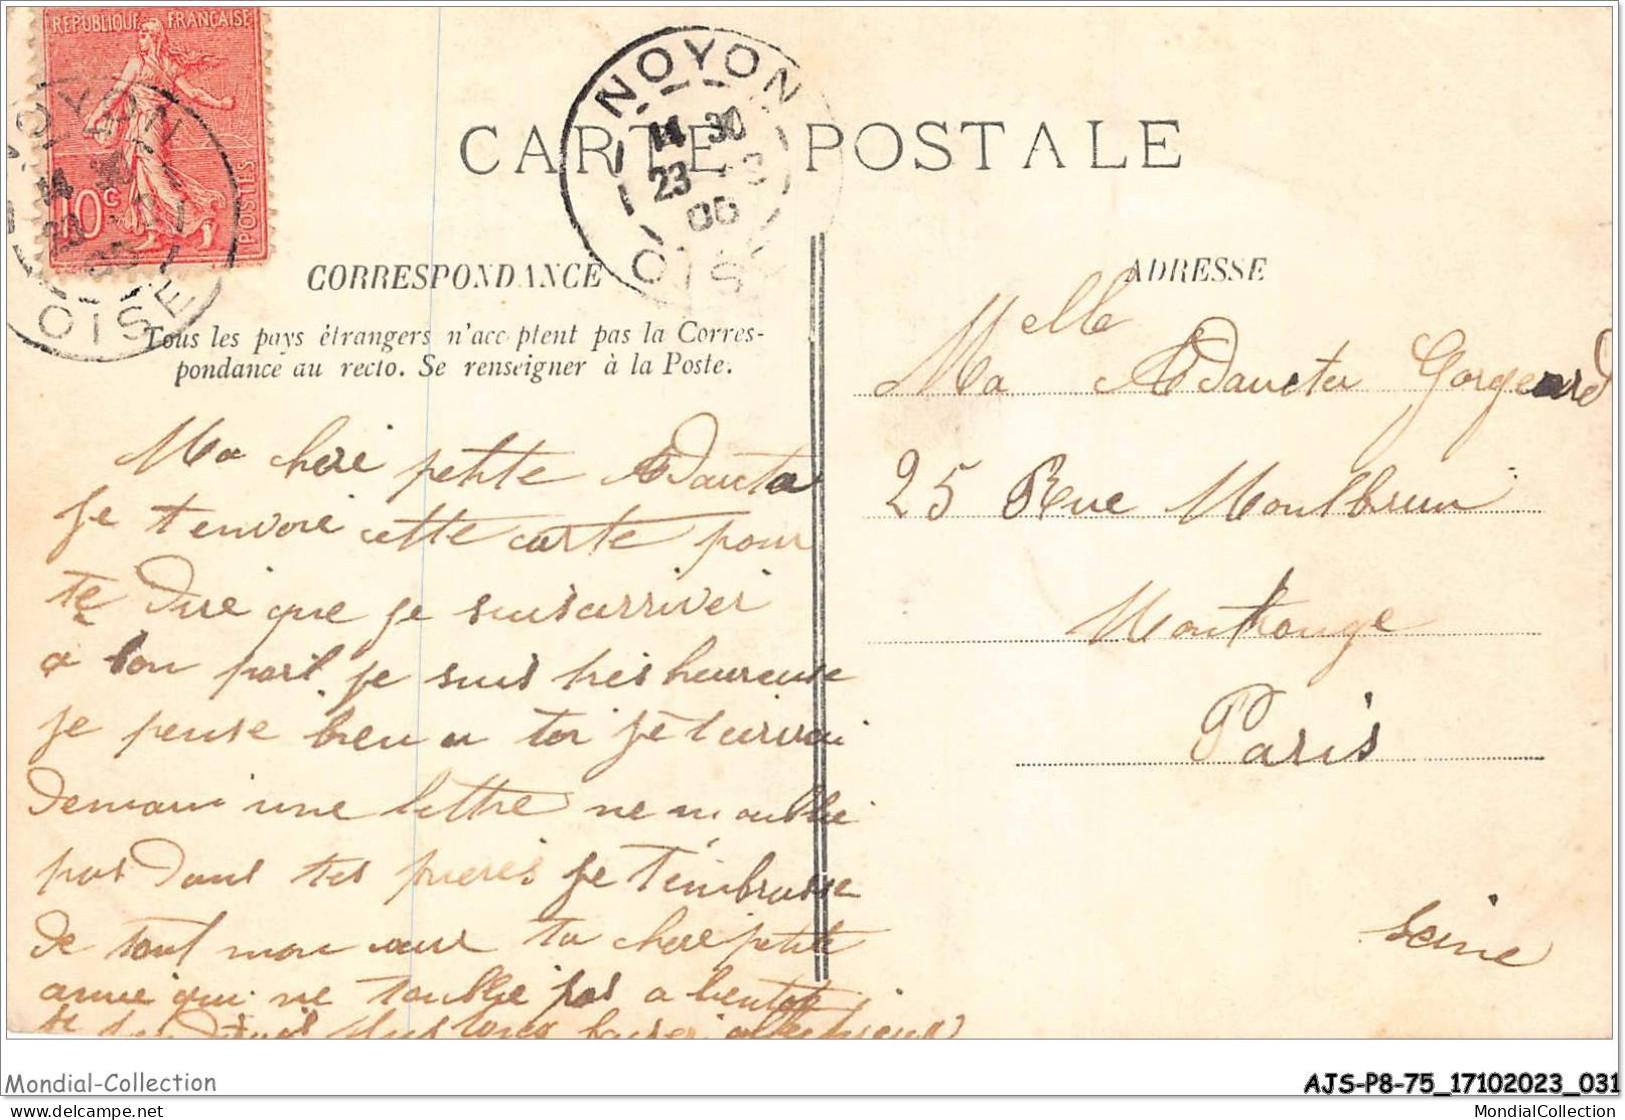 RÉPUBLIQUE FRANÇAISE
10c
POSTES
NOYON
14 30
23
OISE
NOYON
14 30
23
06
OISE
CARTE POSTALE
CORRESPONDANCE
Tous les pays étrangers n'acceptent pas la Corres-
pondance au recto. Se renseigner à la Poste.
ADRESSE
Ma chere petite
Je t envoie cette carte pour
te Dire que je suis arriver
a bon port je suis tres heureuse
je pense bien a toi je t'ecrirai
Demain une lettre ne m oublie
pas Dans tes prieres je t'embrasse
de tout mon cœur ta chere petite
amie qui ne t oublie pas a bentot
Melle
Ma Gorgeard
25 Rue Montbrun
Montrouge
Paris
Seine
Mondial-Collection
AJS-P8-75_17102023_031
www.delcampe.net
MondialCollection